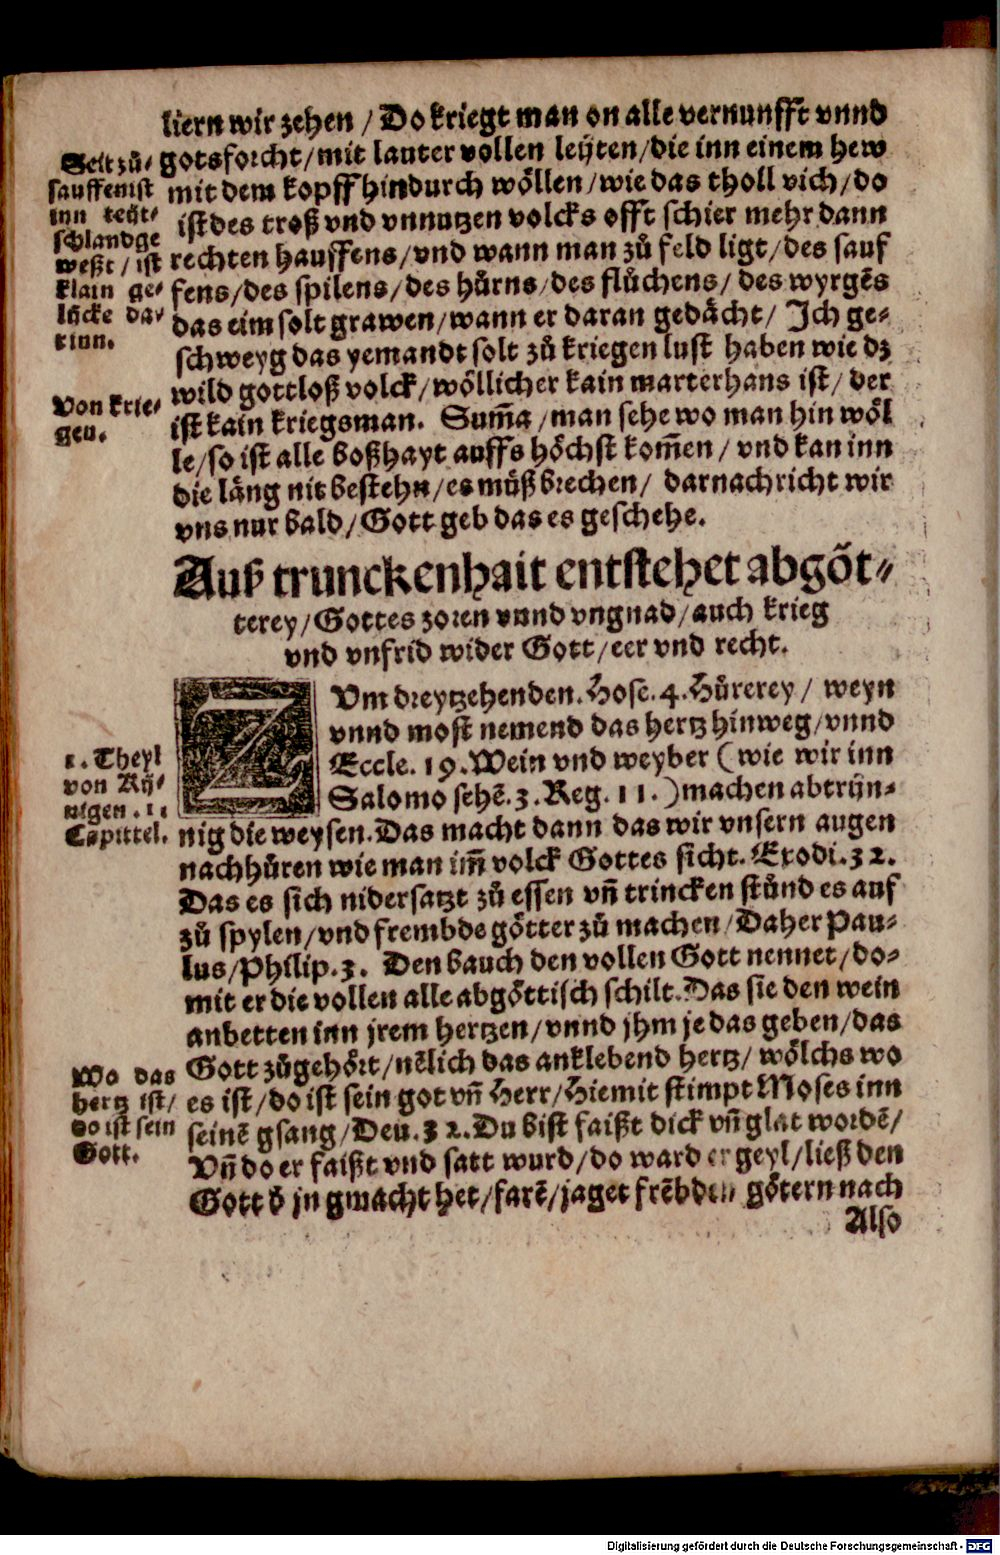 liern wir zehen / Do kriegt man on alle vernunfft vnnd
gotsforcht / mit lauter vollen leüten / die inn einem hew
mit dem kopff hindurch wöllen / wie das tholl vich / do
ist des troß vnd vnnutzen volcks offt schier mehr dann
rechten hauffens / vnd wann man zů feld ligt / des sauf
fens / des spilens / des hůrns / des flůchens / des wyrgẽs
das eim solt grawen / wann er daran gedächt / Ich ge⸗
schweyg das yemandt solt zů kriegen lust haben wie dz
wild gottloß volck / wöllicher kain marterhans ist / der
ist kain kriegsman. Sum̃a / man sehe wo man hin wöl
le / so ist alle boßhayt auffs höchst kom̃en / vnd kan inn
die läng nit bestehn / es můß brechen / darnach richt wir
vns nur bald / Gott geb das es geschehe.
Seit zů⸗
sauffen ist
inn teüt⸗
schland ge
weßt / ist
klain ge⸗
lücke da⸗
rinn.
Von krie⸗
gen.
Auß trunckenhait entstehet abgöt⸗
terey / Gottes zoren vnnd vngnad / auch krieg
vnd vnfrid wider Gott / eer vnd recht.
ZVm dreytzehenden. Hose. 4. Hůrerey / weyn
vnnd most nemend das hertz hinweg / vnnd
Eccle. 19. Wein vnd weyber ( wie wir inn
Salomo sehẽ. 3. Reg. 11. ) machen abtrün⸗
nig die weysen. Das macht dann das wir vnsern augen
nachhůren wie man im̃ volck Gottes sicht. Exodi. 32.
Das es sich nidersatzt zů essen vñ trincken stůnd es auf
zů spylen / vnd frembde götter zů machen / Daher Pau⸗
lus / Philip. 3. Den bauch den vollen Gott nennet / do⸗
mit er die vollen alle abgöttisch schilt. Das sie den wein
anbetten inn jrem hertzen / vnnd jhm je das geben / das
Gott zůgehört / nẽlich das anklebend hertz / wölchs wo
es ist / do ist sein got vñ Herr / Hiemit stimpt Moses inn
seinẽ gsang / Deu. 32. Du bist faißt dick vñ glat wordẽ /
Vñ do er faißt vnd satt wurd / do ward er geyl / ließ den
Gott d̕ jn gmacht het / farẽ / jaget frẽbden götern nach
Also
1. Theyl
von Kü⸗
nigen. 11
Capittel.
Wo das
hertz ist /
do ist sein
Gott.
Digitalisierung gefördert durch die Deutsche Forschungsgemeinschaft - DFG